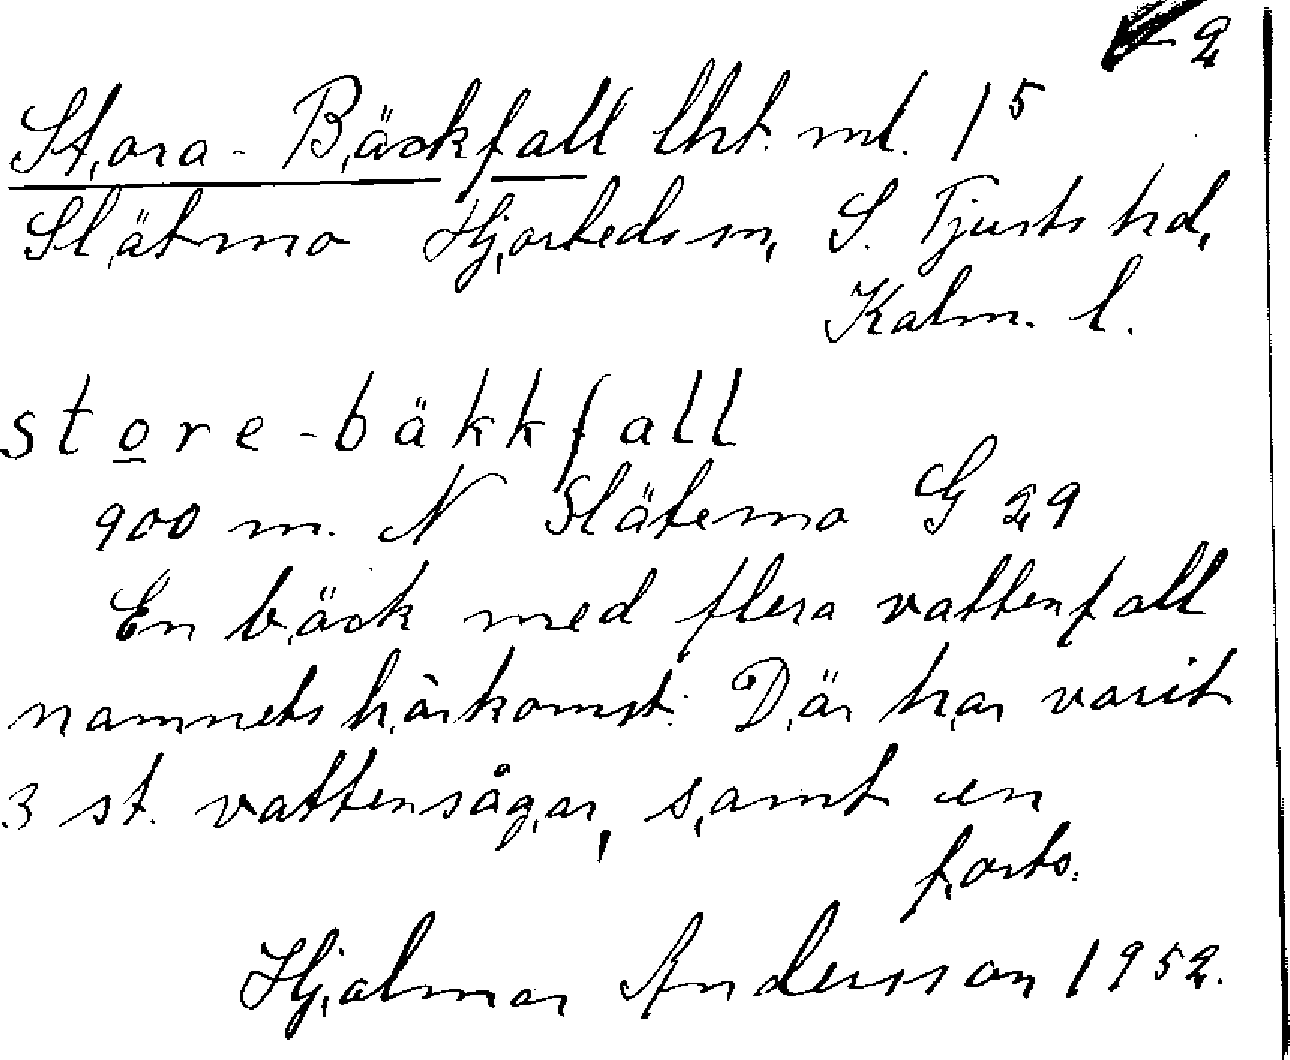 2
Stora-Bäckfall lht. ml. 1 5
Slätmo Hjorteds sn, S. Tjusts hd,
Kalm. l.
store-bäkkfall
900 m. N Slätemo G 29
En bäck med flera vattenfall
namnets härkomst. Där har varit
3 st. vattensågar, samt en
forts.
Hjalmar Andersson 1952.